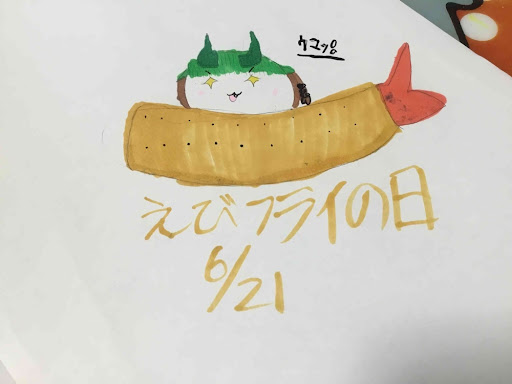 ウコッ。
えびフライの日
6/21